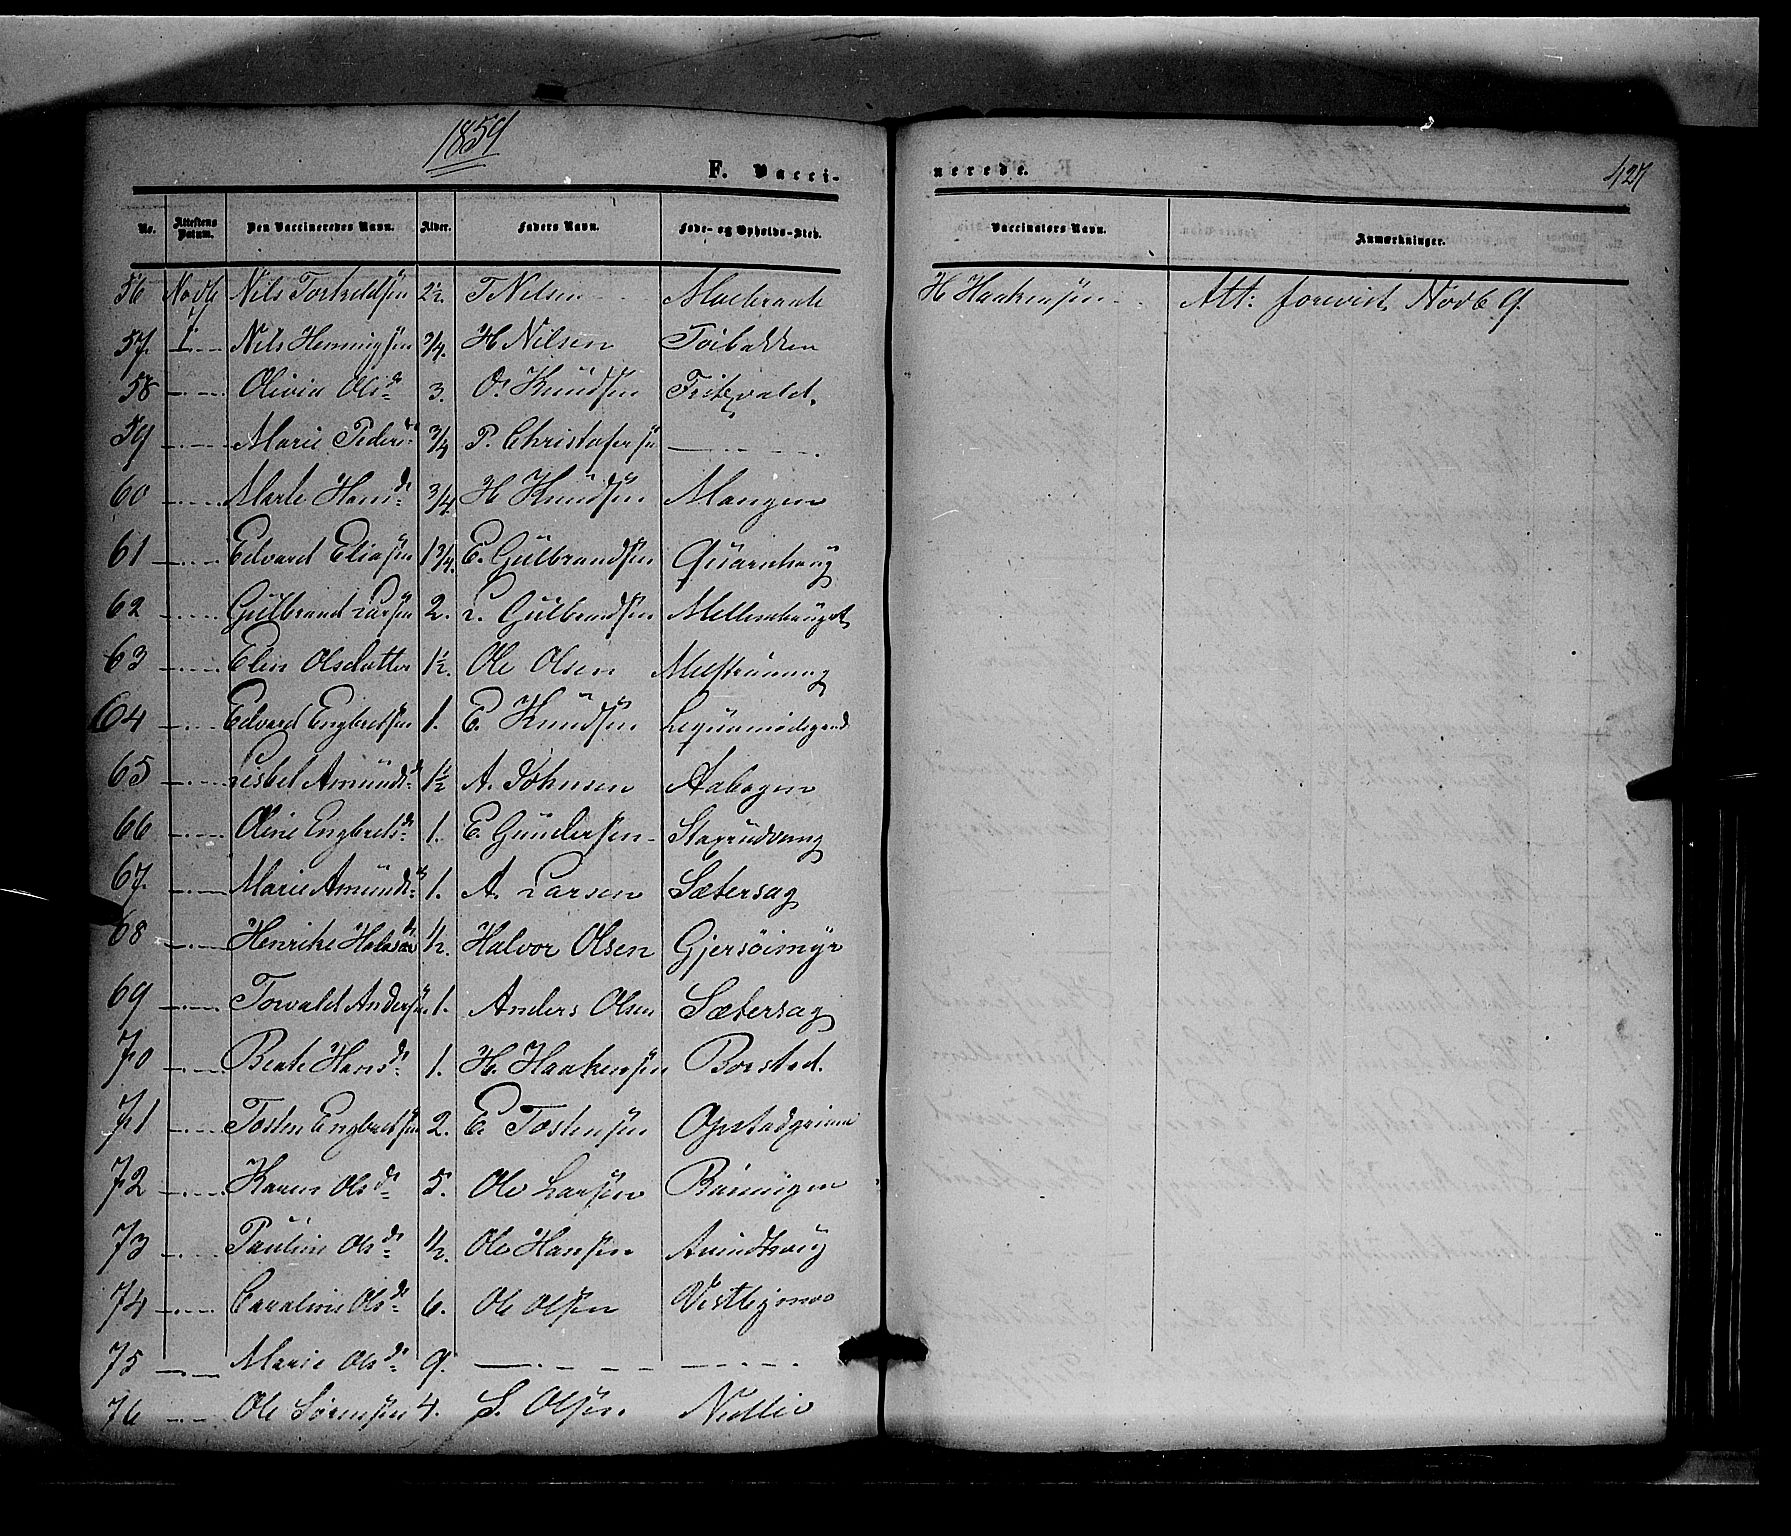 1859
F. Vacci-
nerede.
427
No. Attestens Datum. Den Vaccineredes Navn. Alder. Faders Navn. Føde- og Opholds-Sted. Vaccinators Navn. Anmærkninger.
56 Novb Nils Torkeldsen 2½. T Nilsen H Haakensen Att: forevist Novb 9.
57. Nils Henningsen ¾. H Nilsen Toibakken
58 Olivia Olsd 3. O. Knudsen
59 Marie Pedersd ¾ P. Christofersen
60 Marte Hansd ¾. H Knudsen Mangen
61 Edvard Eliasen 1¾. E. Gulbrandsen Quarnhaug
62 Gulbrand Larsen 2. L. Gulbrandsen
63 Elen Olsdatter 1½. Ole Olsen
64 Edvard Engbretsen 1. E. Knudsen
65 Lisbet Amundsd 1½ A. Johnsen Aabogen
66 Oline Engbretsd 1. E. Gundersen Staxrudvang
67. Marie Amundsd 1. A. Larsen Sætersag
68 Henrike Halvorsd ½. Halvor Olsen Gjersøimyr
69 Torvald Andersen 1. Anders Olsen Sætersag
70 Beate Hansd 1. H. Haakensen Borstad.
71 Tosten Engbretsen 2. E. Tostensen Opstadgrinna
72 Karen Olsd 5. Ole Larsen Rünnigen
73 Pauline Olsd ½. Ole Hansen
74 Caroline Olsd 6. Ole Olsen
75 Marie Olsd 9.
76 Ole Sørensen 4. S. Olsen